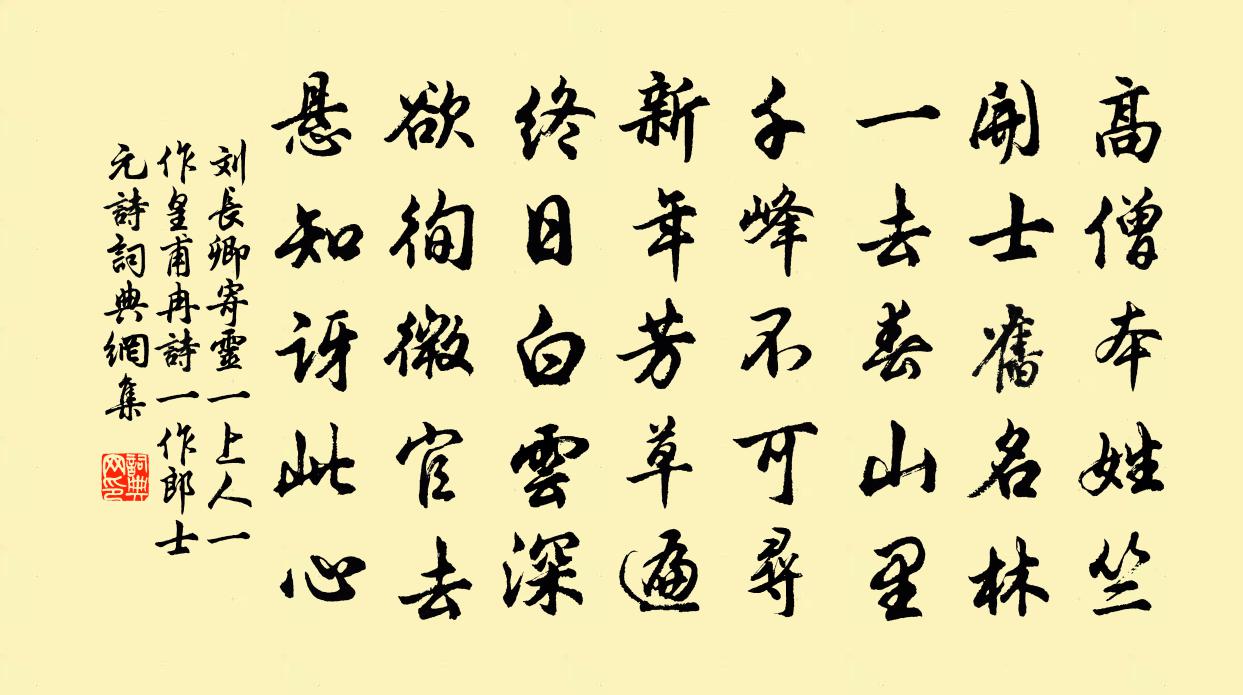 高僧本姓竺
開士舊名林
一去春山里
千峰不可尋
新年芳草遍
終日白雲深
欲徇微官去
悬知讶此心
刘長卿寄靈一上人一
作皇甫冉詩一作郎士
元詩詞典網集
詞典网印